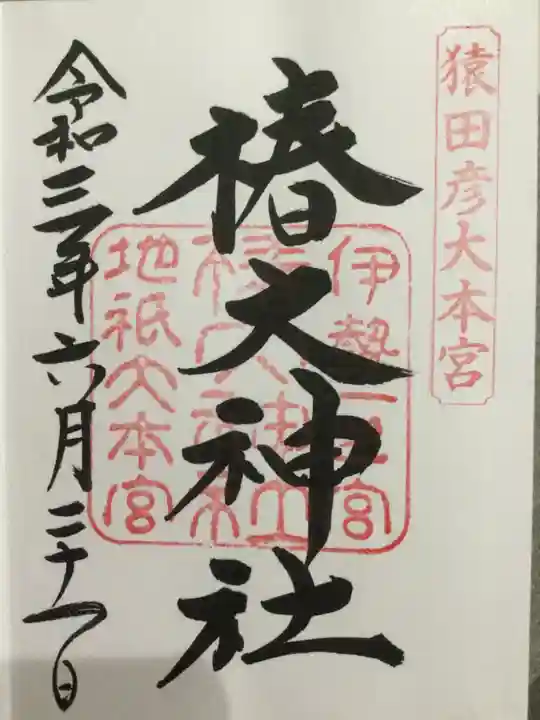 猿田彦大本宮
椿大神社
伊勢一宮
椿大神社
地祇大本宮
令和三年六月二十一日